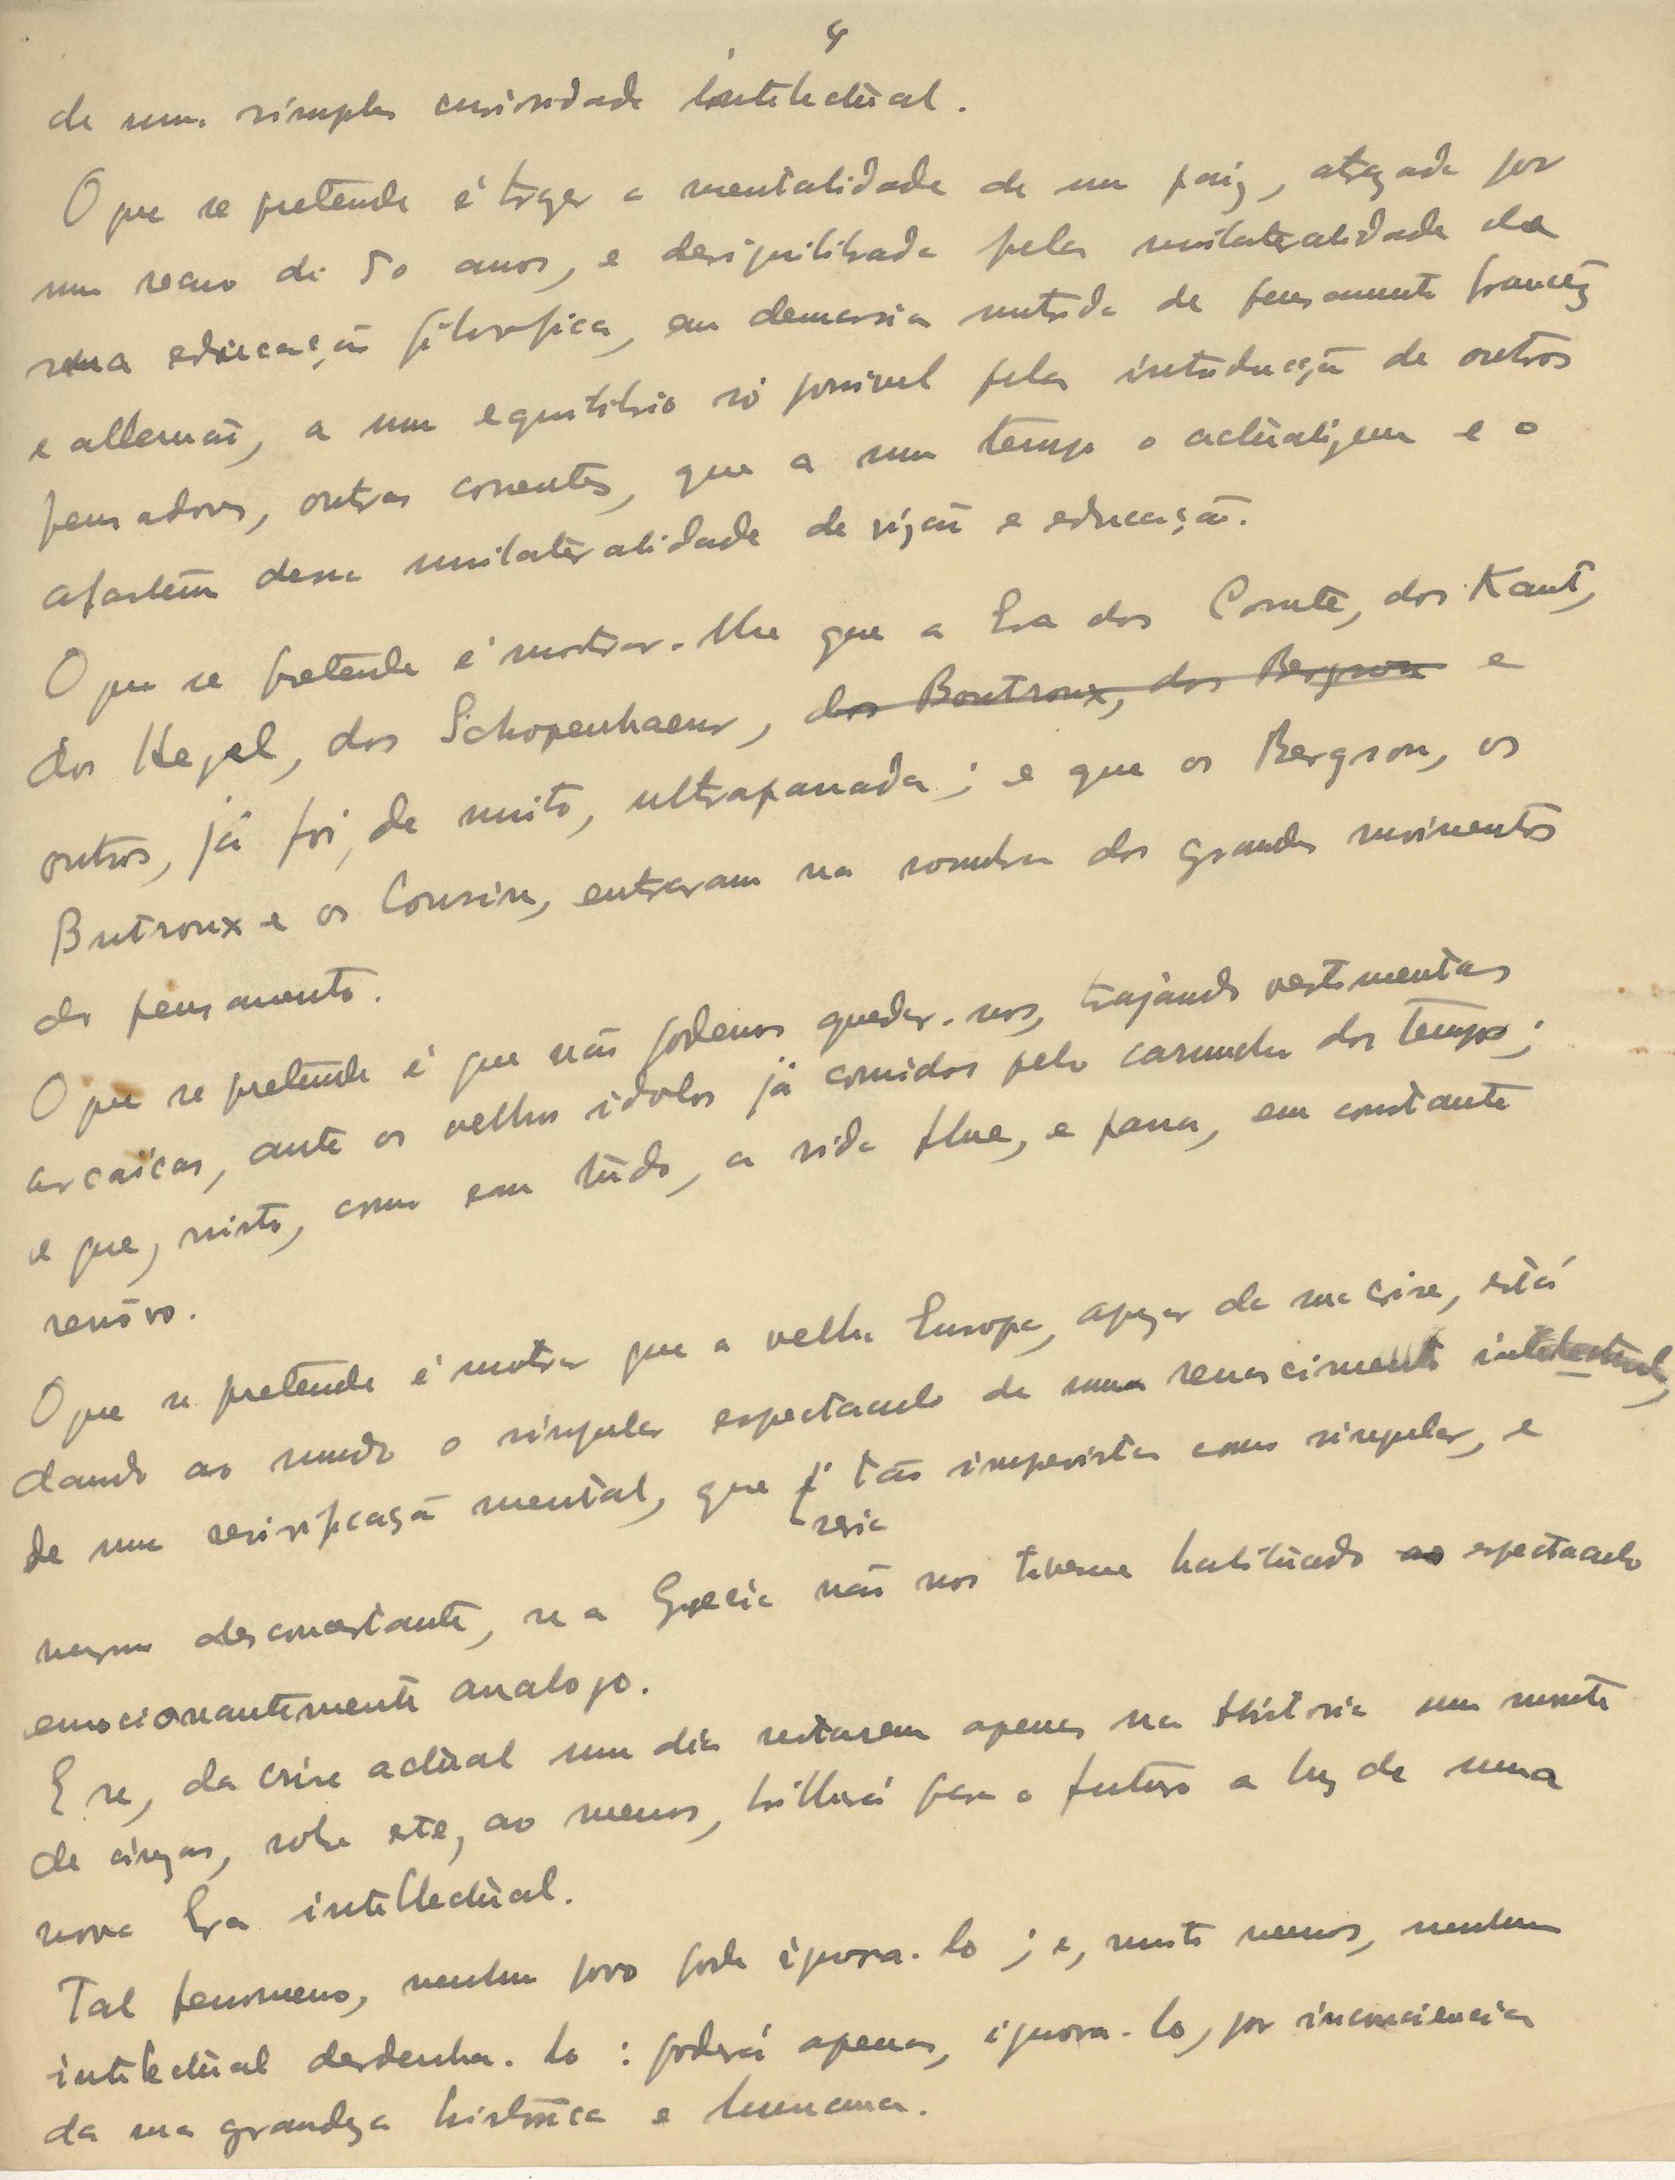 4
de uma simples curiosidade intelectual.
O que se pretende é trazer a mentalidade de um paiz, atrazada por
um recuo de 50 anos, e desiquilibrada pela unilateralidade da
sua educação filosofica, em demasia nutrida de pensamento francêz
e allemão, a um equilibrio só possivel pela introducção de outros
pensadores, outras correntes, que a um tempo o actualizem e o
afastem dessa unilateralidade de vizão e educação.
O que se pretende é mostrar-lhe que a Era dos Comte, dos Kant,
dos Hegel, dos Schopenhaeur, dos Boutroux, dos Bergson e
outros, já foi, de muito, ultrapassada; e que os Bergson, os
Butroux e os Cousin, entraram na sombra dos grandes movimentos
do pensamento.
O que se pretende é que não podemos quedar-nos, trajando vestimentas
arcaicas, ante os velhos idolos já comidos pelo caruncho dos tempos;
e que, nisto, como em tudo, a vida flue, e passa, em constante
renôvo.
O que se pretende é mostrar que a velha Europa, apezar da sua crise, está
dando ao mundo o singular espectaculo de uma renascimento intelectual,
de uma revivificação mental, que é tão imprevista como singular, e
seria
mesmo desconcertante, se a Grecia não nos tivesse habituado ao espectaculo
emocionantemente analogo.
E se, da crise actual um dia restarem apenas na Historia um monte
de cinzas, sobre este, ao menos, brilhará para o futuro a luz de uma
nova Era intellectual.
Tal fenomeno, nenhum povo pode ignora-lo; e, muito menos, nenhum
intelectual desdenha-lo: poderá apenas, ignora-lo, por inconsciencia
da sua grandeza historica e humana.